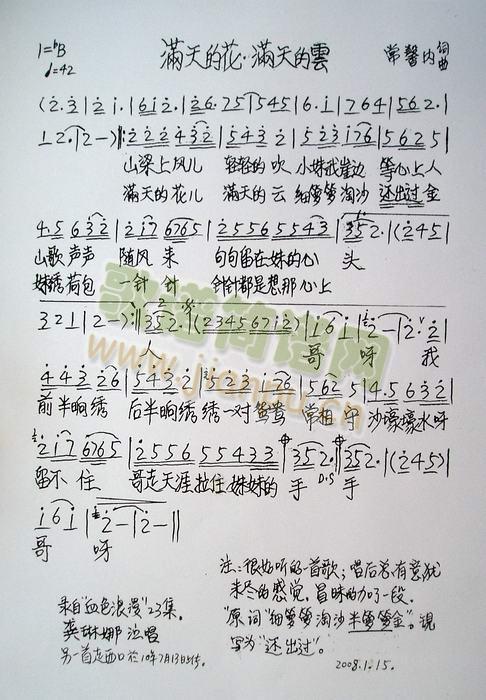 1=♭B
♩=42
滿天的花·滿天的雲
常馨内 词曲
(2·3|2 1·|6 1 2·|2 6·7 5|5 4 5|6·1|7 6 4|5 6 2·|
1 2·|2 -)‖:2 2 2 4 3 2|5 4 3 2|5 2 3 1 7 6|5 6 2 5|
山梁上风儿 轻轻的吹 小妹我崖边 等心上人
滿天的花儿 滿天的云 细箩箩淘沙 还出过金
4·5 6 3 2|2 1 7 6 7 6 5|2 5 5 6 5 5 4 3|3 5 2·|(2 4 5|
山歌声声 随风来 句句留在妹的心头
妹绣荷包 一针针 针针都是想那心上
3 2 1|2 -):‖3 5 2·|(2 3 4 5 6 7 1 2)|1 6 1|2 -|2·2|
人 哥 呀 我
4 4 3 2 6|5 4 3 2|1 2 3 1 7 6|5 6 2 5|4·5 6 3 2|
前半晌绣 后半晌绣 绣一对鸳鸯 常相守 沙壕壕水呀
2 1 7 6 7 6 5|2 5 5 6 5 5 4 3 3|3 5 2·‖3 5 2·|(2 4 5)|
留不住 哥走天涯拉住妹妹的手 D.S 手
1 6 1|2 -|2 -‖
哥 呀
注:很好听的一首歌;唱后总有意犹
未尽的感觉,冒昧的加了一段.
"原词"细箩箩淘沙半箩箩金".现
写为"还出过".
2008.1.15.
录自"血色浪漫"23集.
龚琳娜演唱
另一首走西口於10年7月13日上传.
歌谱简谱网
www.jianpu.cn